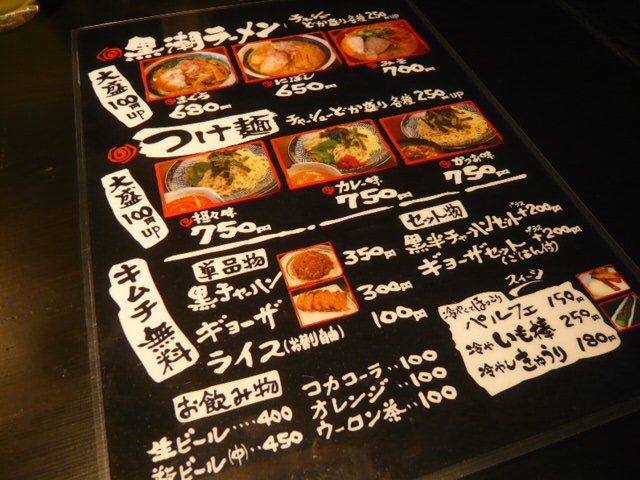 黒潮ラーメン
チャーシューどか盛り各種250円UP
大盛100円UP
まぐろ
680円
にぼし
650円
みそ
700円
つけ麺
チャーシューどか盛り各種250円UP
大盛100円UP
担々味
750円
カレー味
750円
かつお味
750円
キムチ無料
単品物
黒チャーハン 350円
ギョーザ 300円
ライス(お替り自由) 100円
セット物
黒半チャーハンセット プラス+200円
ギョーザセット(ごはん付) プラス+200円
スイーツ
ペルフェ 150円
冷やいも棒 250円
冷やしきゅうり 180円
お飲み物
生ビール…400
瓶ビール(中)…450
コカコーラ…100
オレンジ…100
ウーロン茶…100